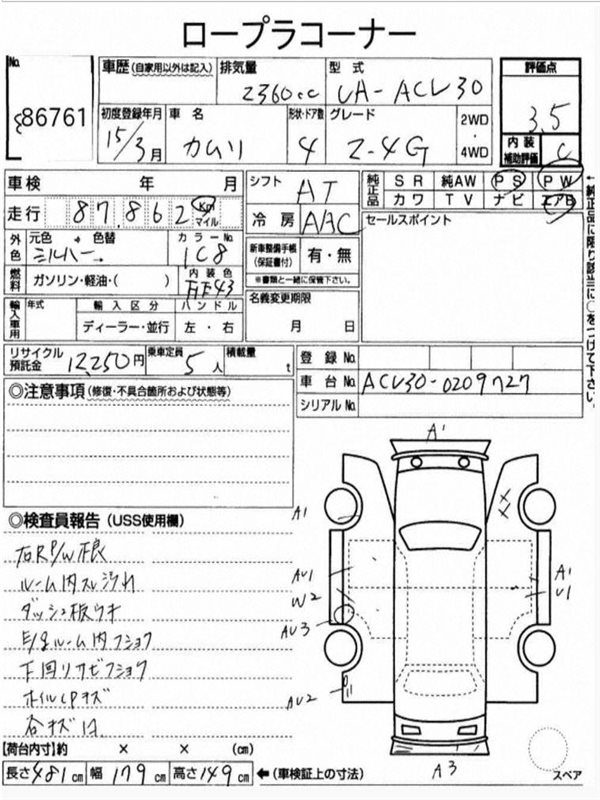 ロープラコーナー
No. 86761
車歴 (自家用以外は記入) 排気量 2360cc 型式 UA-ACV30 評価点 3.5
初度登録年月 15/3月 車名 カムリ 形状・ドア数 4 グレード 2-4G 2WD・4WD 内装補助評価 C
車検 年 月 シフト AT 純正品 SR 純AW PS PW
カワ TV ナビ エアB
走行 87,862 Km マイル 冷房 AAC セールスポイント
外色 元色 色替 シルバー カラーNo. 1C8 新車整備手帳(保証書付) 有・無
※書類と一緒に保管下さい。
燃料 ガソリン・軽油・( ) 内装色 43 名義変更期限 月 日
輸入車用 年式 輸入区分 ハンドル
ディーラー・並行 左・右
←純正品に限り該当に○をつけて下さい。
リサイクル預託金 12250円 乗車定員 5人 積載量 t 登録No.
車台No. ACV30-0209727
シリアルNo.
◎注意事項 (修復・不具合箇所および状態等)
◎検査員報告 (USS使用欄)
右RP/W不良
ルーム内スレ汚れ
ダッシュ板ウキ
ルーム内フショク
下回りサビフショク
ホイルCPキズ
各キズ凹
A1
A1
AU1
W2
AU3
AU2
A1
U1
A3
スペア
【荷台内寸】約 × × (cm)
長さ 481cm 幅 179cm 高さ 149cm ←(車検証上の寸法)